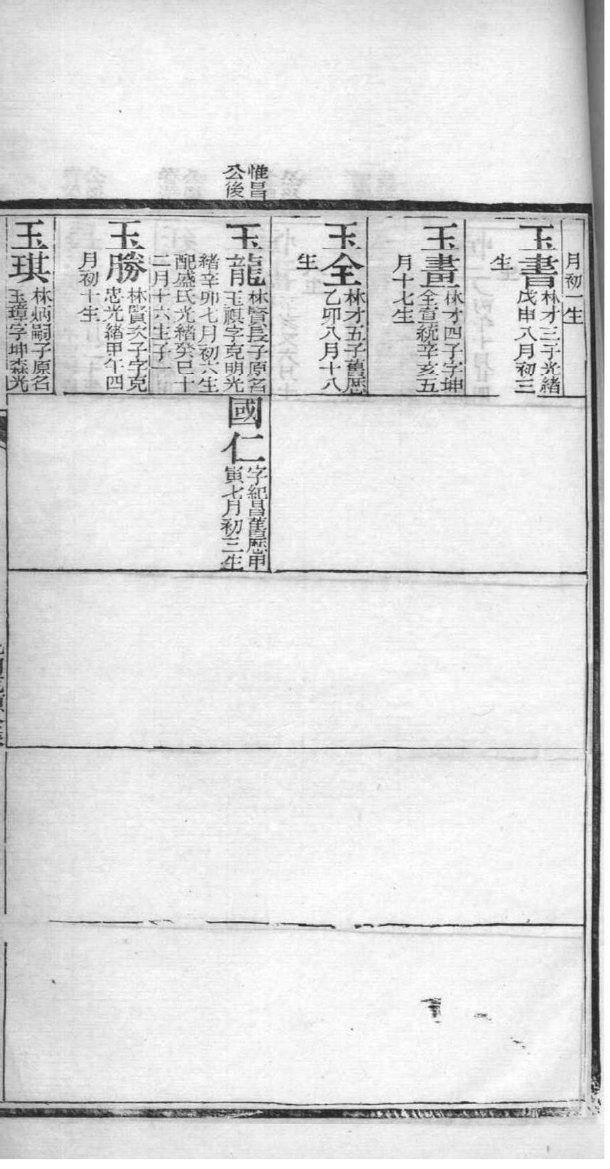 惟昌
公後
月初一生
玉書
林才三子光緒
戊申八月初三
生
玉畫
林才四子字坤
全宣統辛亥五
月十七生
玉全
林才五子舊歷
乙卯八月十八
生
玉龍
林賢長子原名
玉祺字克明光
緒辛卯七月初六生
配盛氏光緒癸巳十
二月十六生子一
玉勝
林賢次子字克
忠光緒甲午四
月初十生
玉琪
林炳嗣子原名
玉璋字坤森光
國仁
字紀昌舊歷甲
寅七月初三生